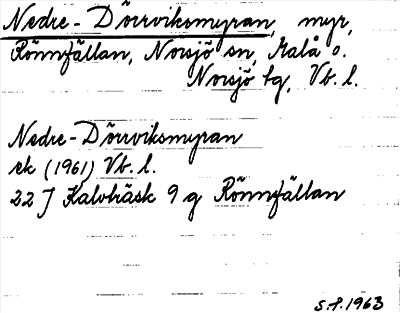 Nedre-Dörrviksmyran, myr,
Rönnfällan, Norsjö sn, Malå o.
Norsjö tg, Vb. l.
Nedre-Dörrviksmyran
ek (1961) Vb. l.
22 J Kalvträsk 9 g Rönnfällan
S.P. 1963